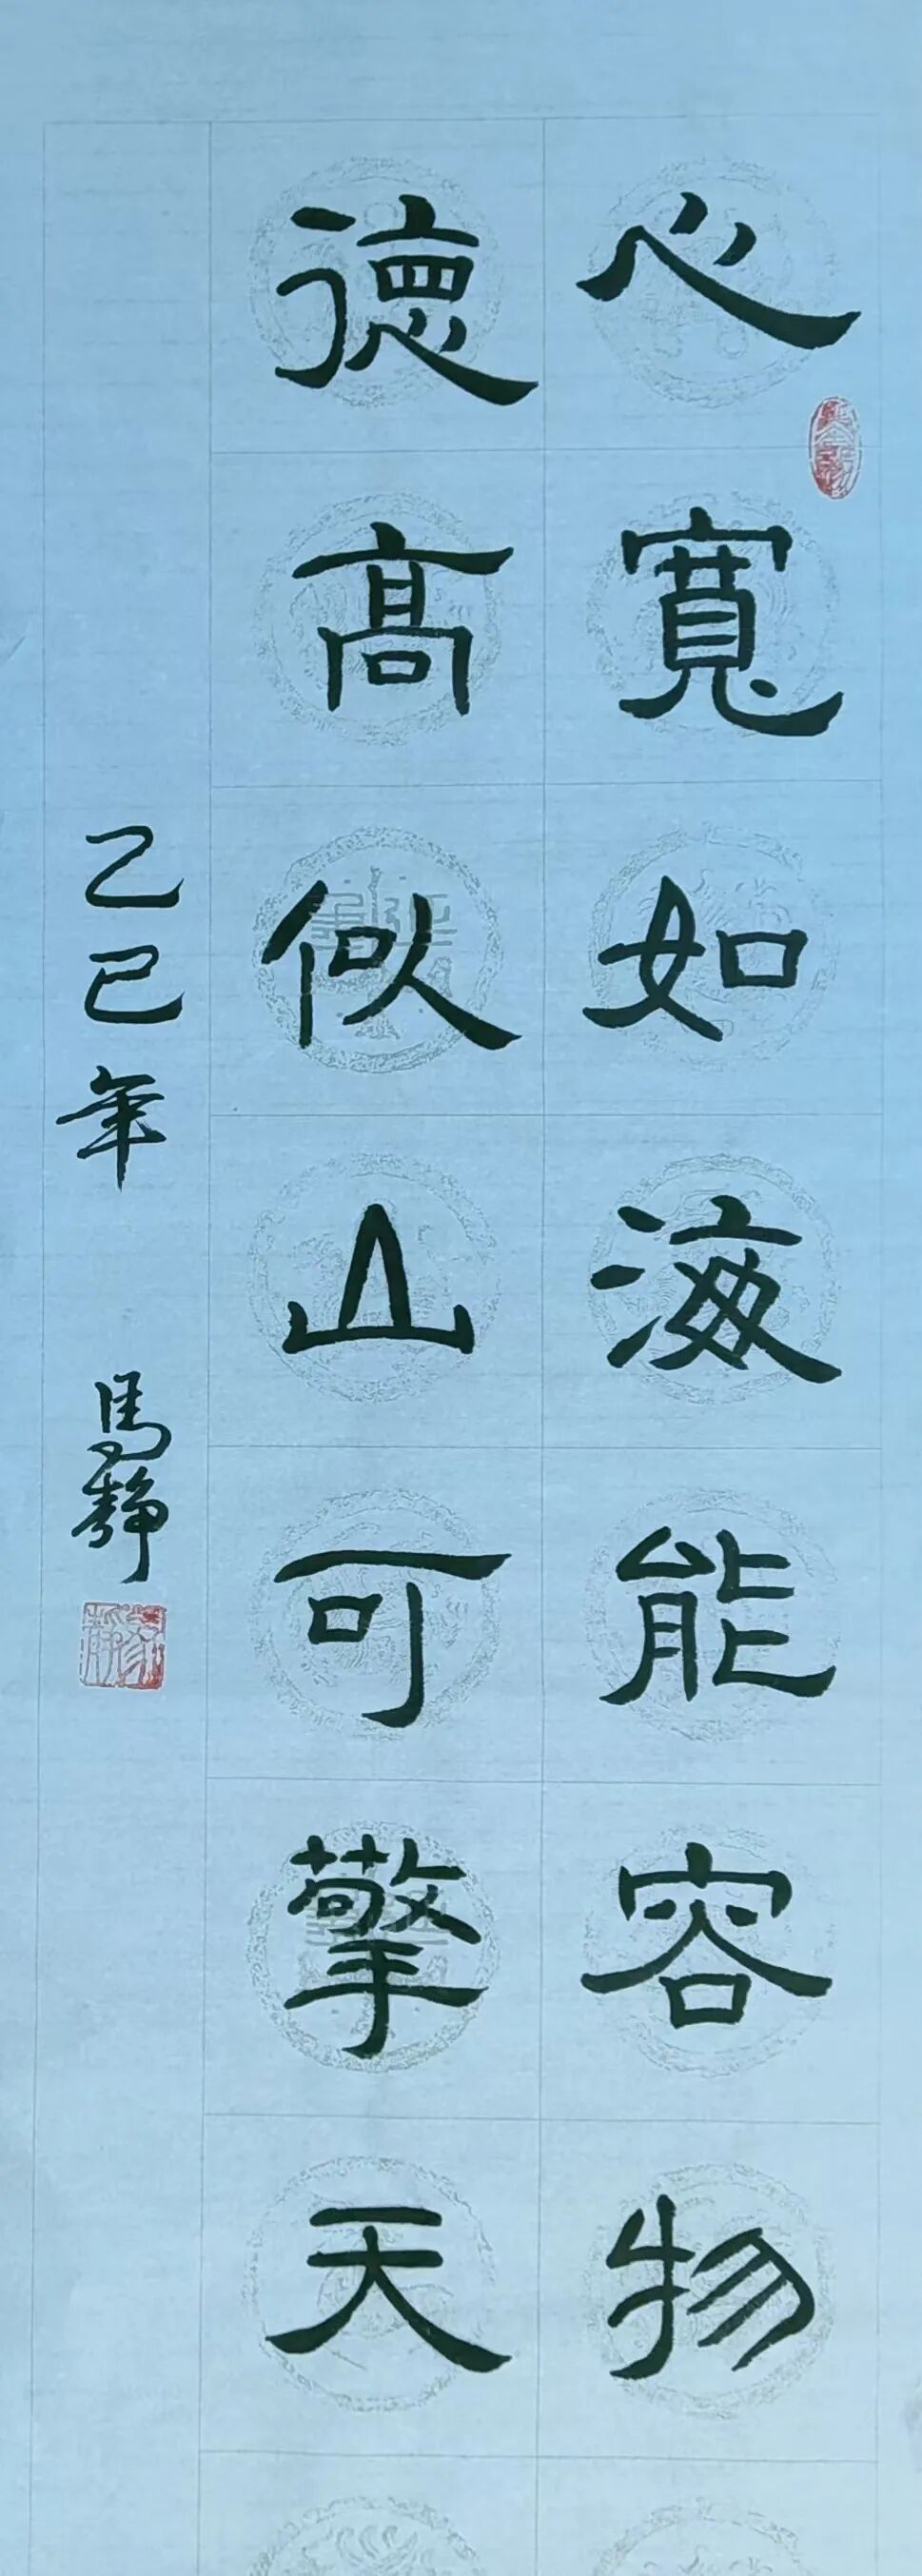 心寬如海能容物
德高似山可擎天
乙巳年 馬靜